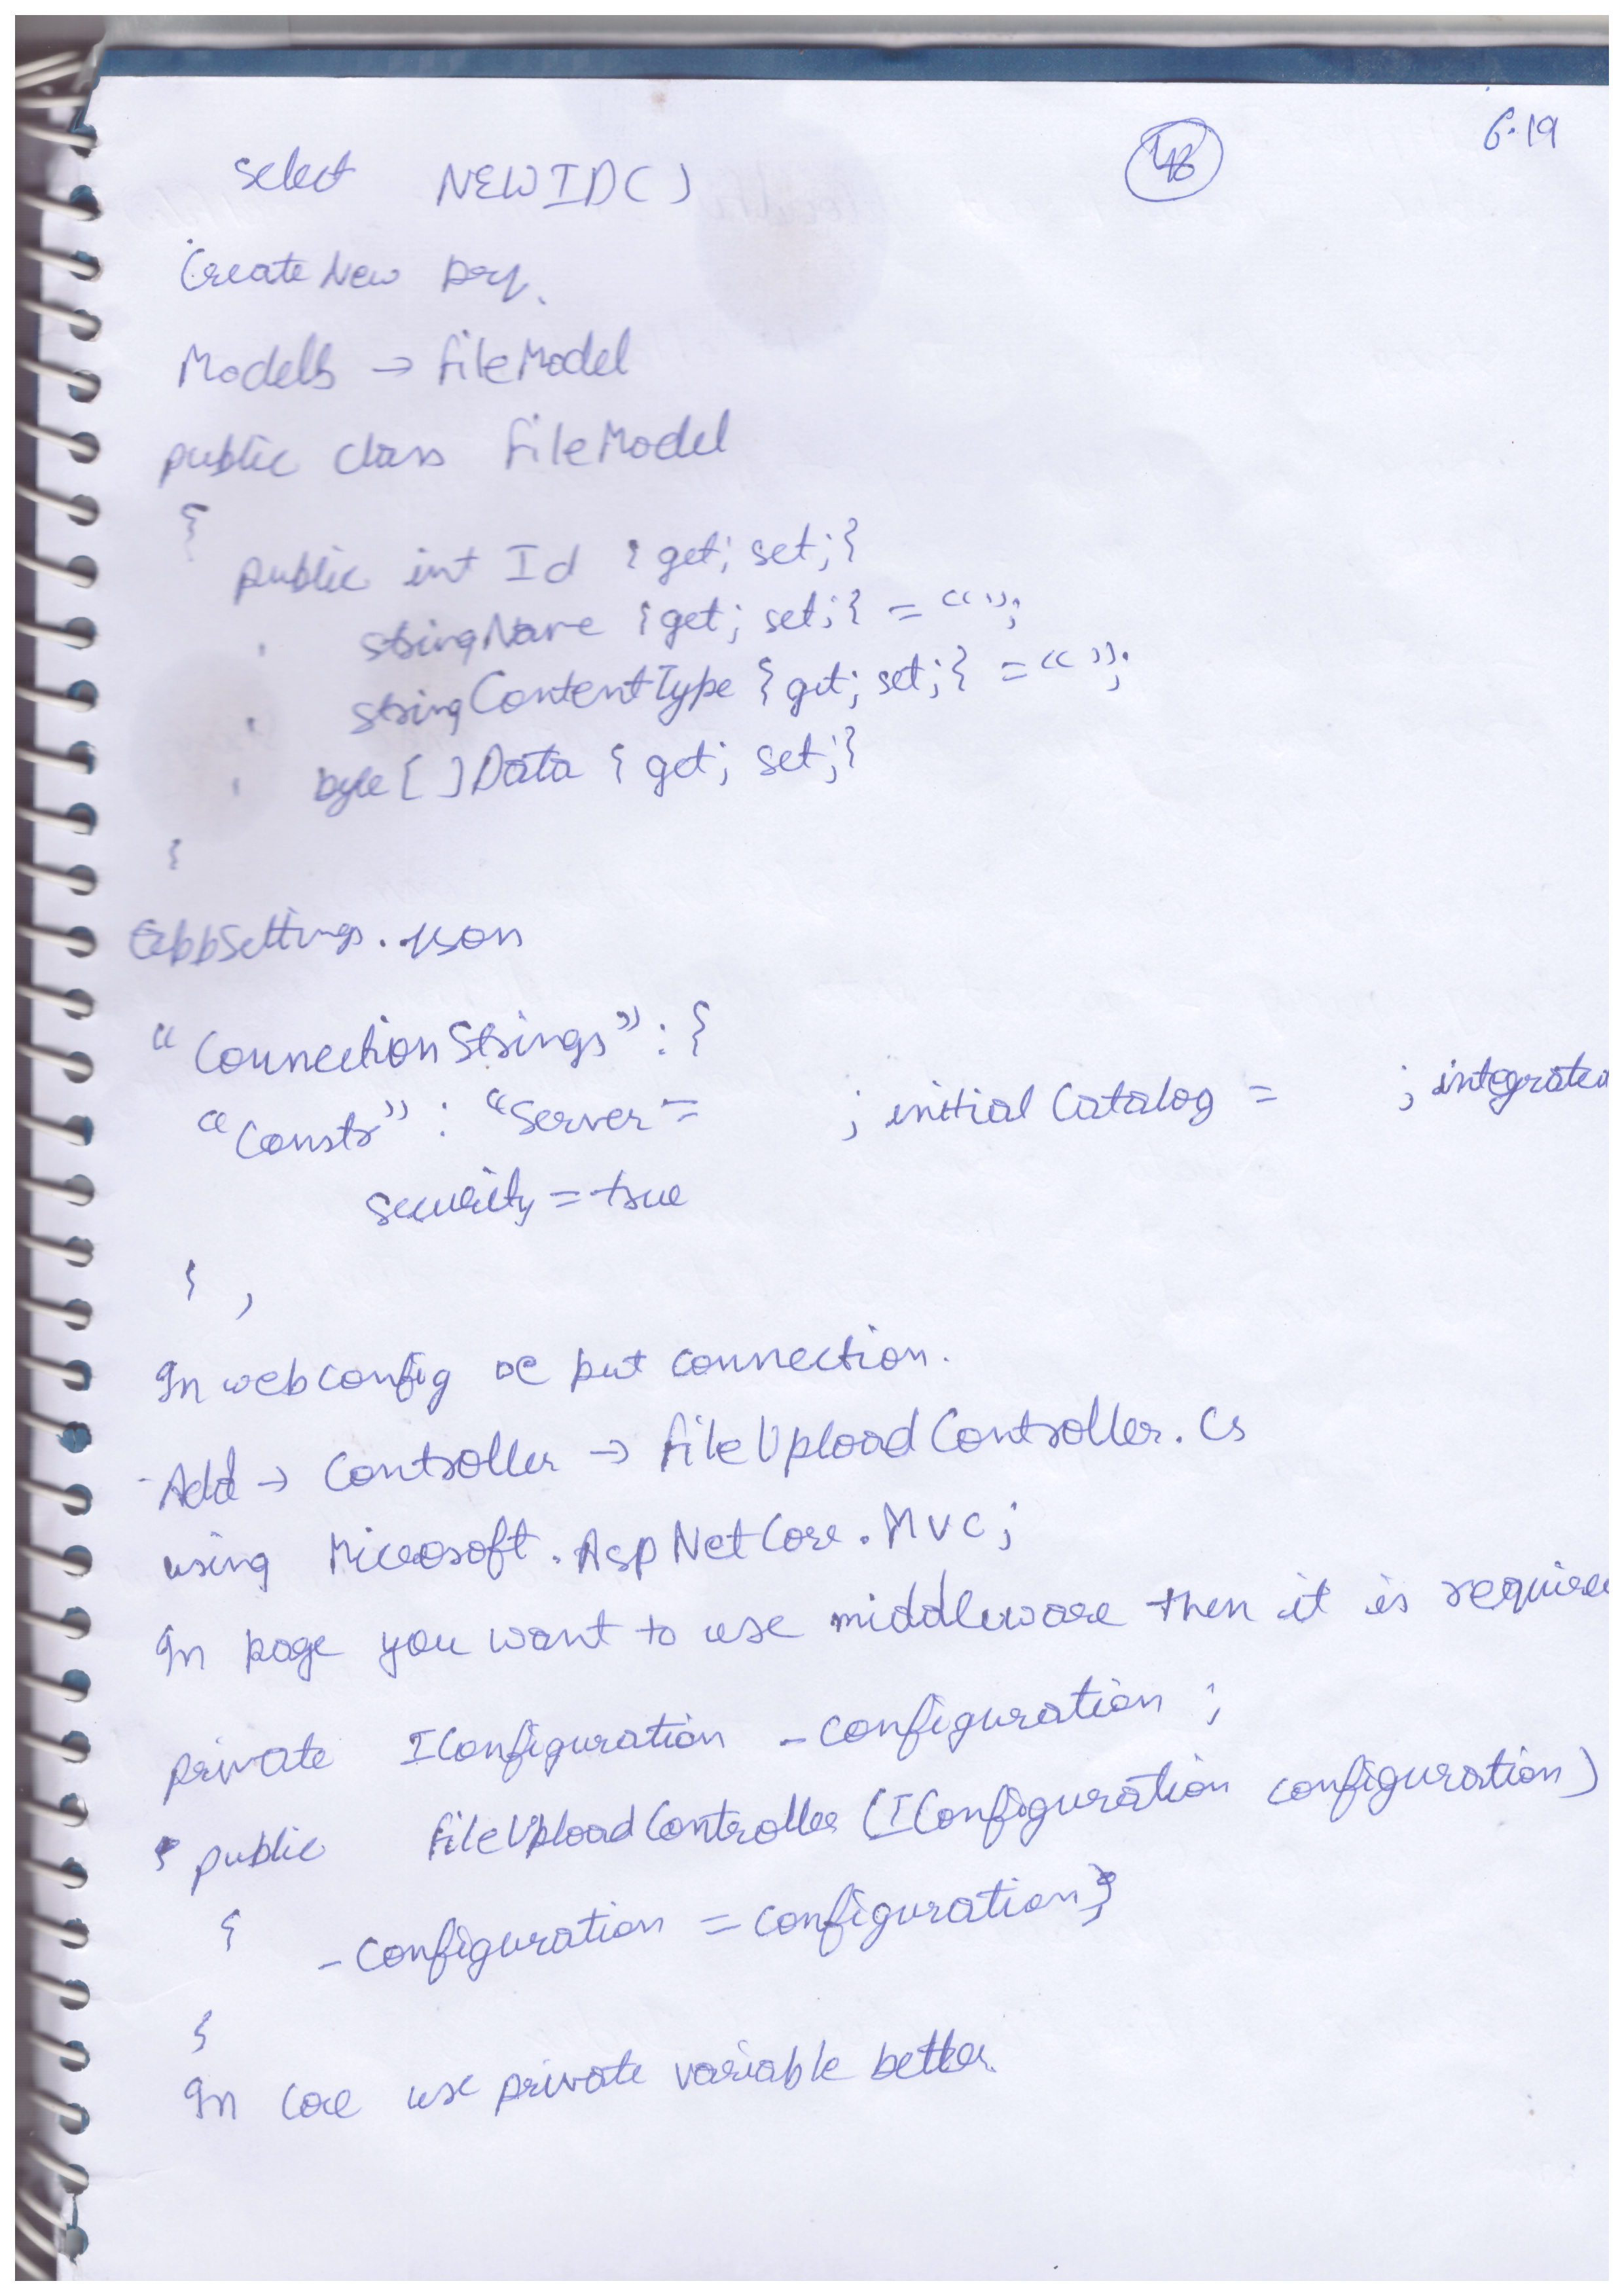 6.19
48
select NEWID()
Create New
Models → fileModel
public class fileModel
{
public int Id { get; set; }
" string Name { get; set; } = “ ”;
" string ContentType { get; set; } = “ ”;
" byte [ ] Data { get; set; }
}
appSettings.json
“ConnectionStrings” : {
“Constr” : “Server = ; initial Catalog = ; integrated
security = true
} ,
In webconfig we put connection.
Add → Controller → fileUploadController.cs
using Microsoft.AspNetCore.Mvc;
In page you want to use middleware then it is require
private IConfiguration _configuration ;
public fileUploadController (IConfiguration configuration)
{ _configuration = configuration;
}
In core use private variable better.